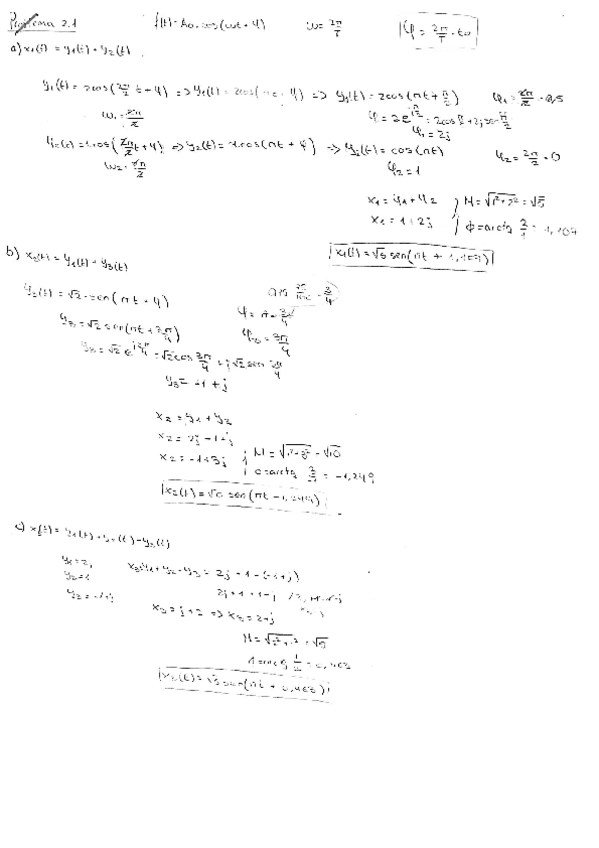 Problema 2.1 f(t)=A₀·cos(ωt+φ) ω=2π/T φ=2π/T·t₀
a) x₁(t) = y₁(t)+y₂(t)
y₁(t)=2cos(2π/2 t+φ) ⇒ y₁(t)=2cos(πt+φ) ⇒ y₁(t)=2cos(πt+π/2) φ₁=2π/2·0,5
ω₁=2π/2
φ₁=2j
y₂(t)=1cos(2π/2 t+φ) ⇒ y₂(t)=1cos(πt+φ) ⇒ y₂(t)=cos(πt) φ₂=2π/2·0
ω₂=2π/2 φ₂=1
x₁=y₁+y₂ M=√1²+2²=√5
x₁=1+2j ϕ=arctg 2/1=1,107
x₁(t)=√5 sen(πt+1,107)
b) x₂(t)=y₁(t)+y₃(t)
y₃(t)=√2·sen(πt+φ)
φ=π·3/4
y₃=√2 sen(πt+3π/4) φ₃=3π/4
y₃=√2 e^{j3π/4}=√2cos 3π/4+j√2sen 3π/4
y₃=-1+j
x₂=y₁+y₃
x₂=2j-1+j
x₂=-1+3j M=√1²+3²=√10
=-1,249
x₂(t)=√10 sen(πt-1,249)
c) x₃(t)=y₁(t)+y₂(t)-y₃(t)
y₂=1 x₃=y₁+y₂-y₃=2j+1-(-1+j)
y₃=-1+j 2j+1+1-j
x₃=j+2 ⇒ x₃=2+j
M=√2²+1²=√5
=0,463
x₃(t)=√5 sen(πt+0,463)